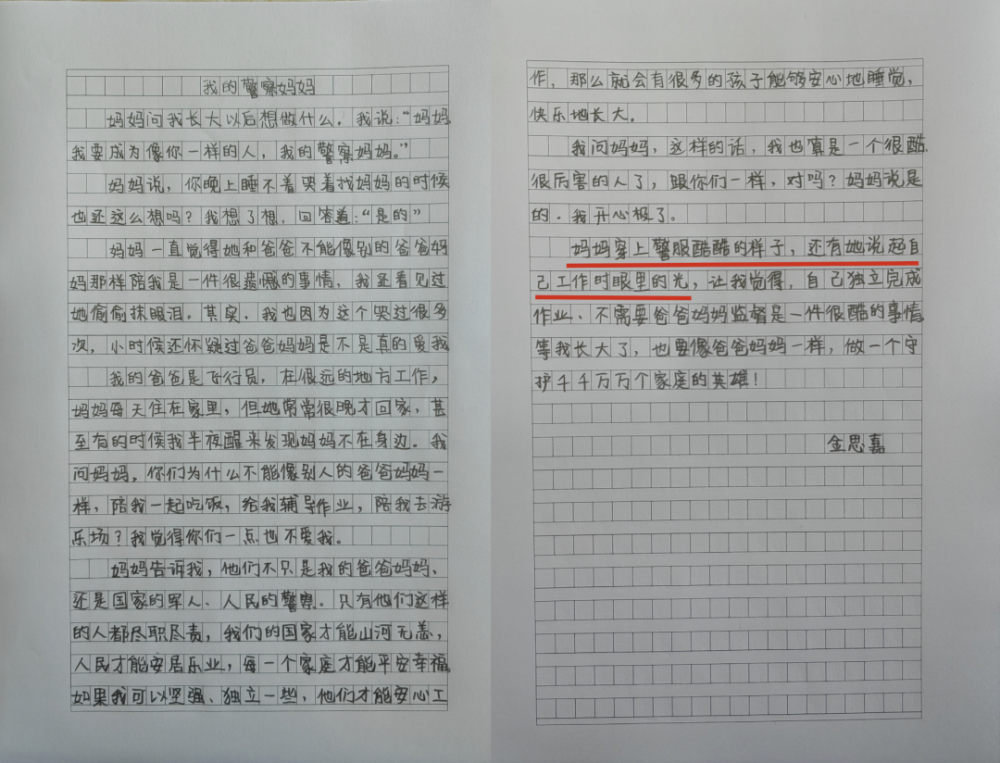 我的警察妈妈
妈妈问我长大以后想做什么，我说：“妈妈，
我要成为像你一样的人，我的警察妈妈。”
妈妈说，你晚上睡不着哭着找妈妈的时候
也还这么想吗？我想了想，回答道：“是的”
妈妈一直觉得她和爸爸不能像别的爸爸妈
妈那样陪我是一件很遗憾的事情，我还看见过
她偷偷抹眼泪。其实，我也因为这个哭过很多
次，小时候还怀疑过爸爸妈妈是不是真的爱我
我的爸爸是飞行员，在很远的地方工作，
妈妈每天住在家里，但她常常很晚才回家，甚
至有的时候我半夜醒来发现妈妈不在身边。我
问妈妈，你们为什么不能像别人的爸爸妈妈一
样，陪我一起吃饭，给我辅导作业，陪我去游
乐场？我觉得你们一点也不爱我。
妈妈告诉我，他们不只是我的爸爸妈妈、
还是国家的军人、人民的警察。只有他们这样
的人都尽职尽责，我们的国家才能山河无恙，
人民才能安居乐业，每一个家庭才能平安幸福
如果我可以坚强、独立一些，他们才能安心工
作，那么就会有很多的孩子能够安心地睡觉，
快乐地长大。
我问妈妈，这样的话，我也真是一个很酷、
很厉害的人了，跟你们一样，对吗？妈妈说是
的。我开心极了。
妈妈穿上警服酷酷的样子，还有她说起自
己工作时眼里的光，让我觉得，自己独立完成
作业、不需要爸爸妈妈监督是一件很酷的事情
等我长大了，也要像爸爸妈妈一样，做一个守
护千千万万个家庭的英雄！
金思嘉